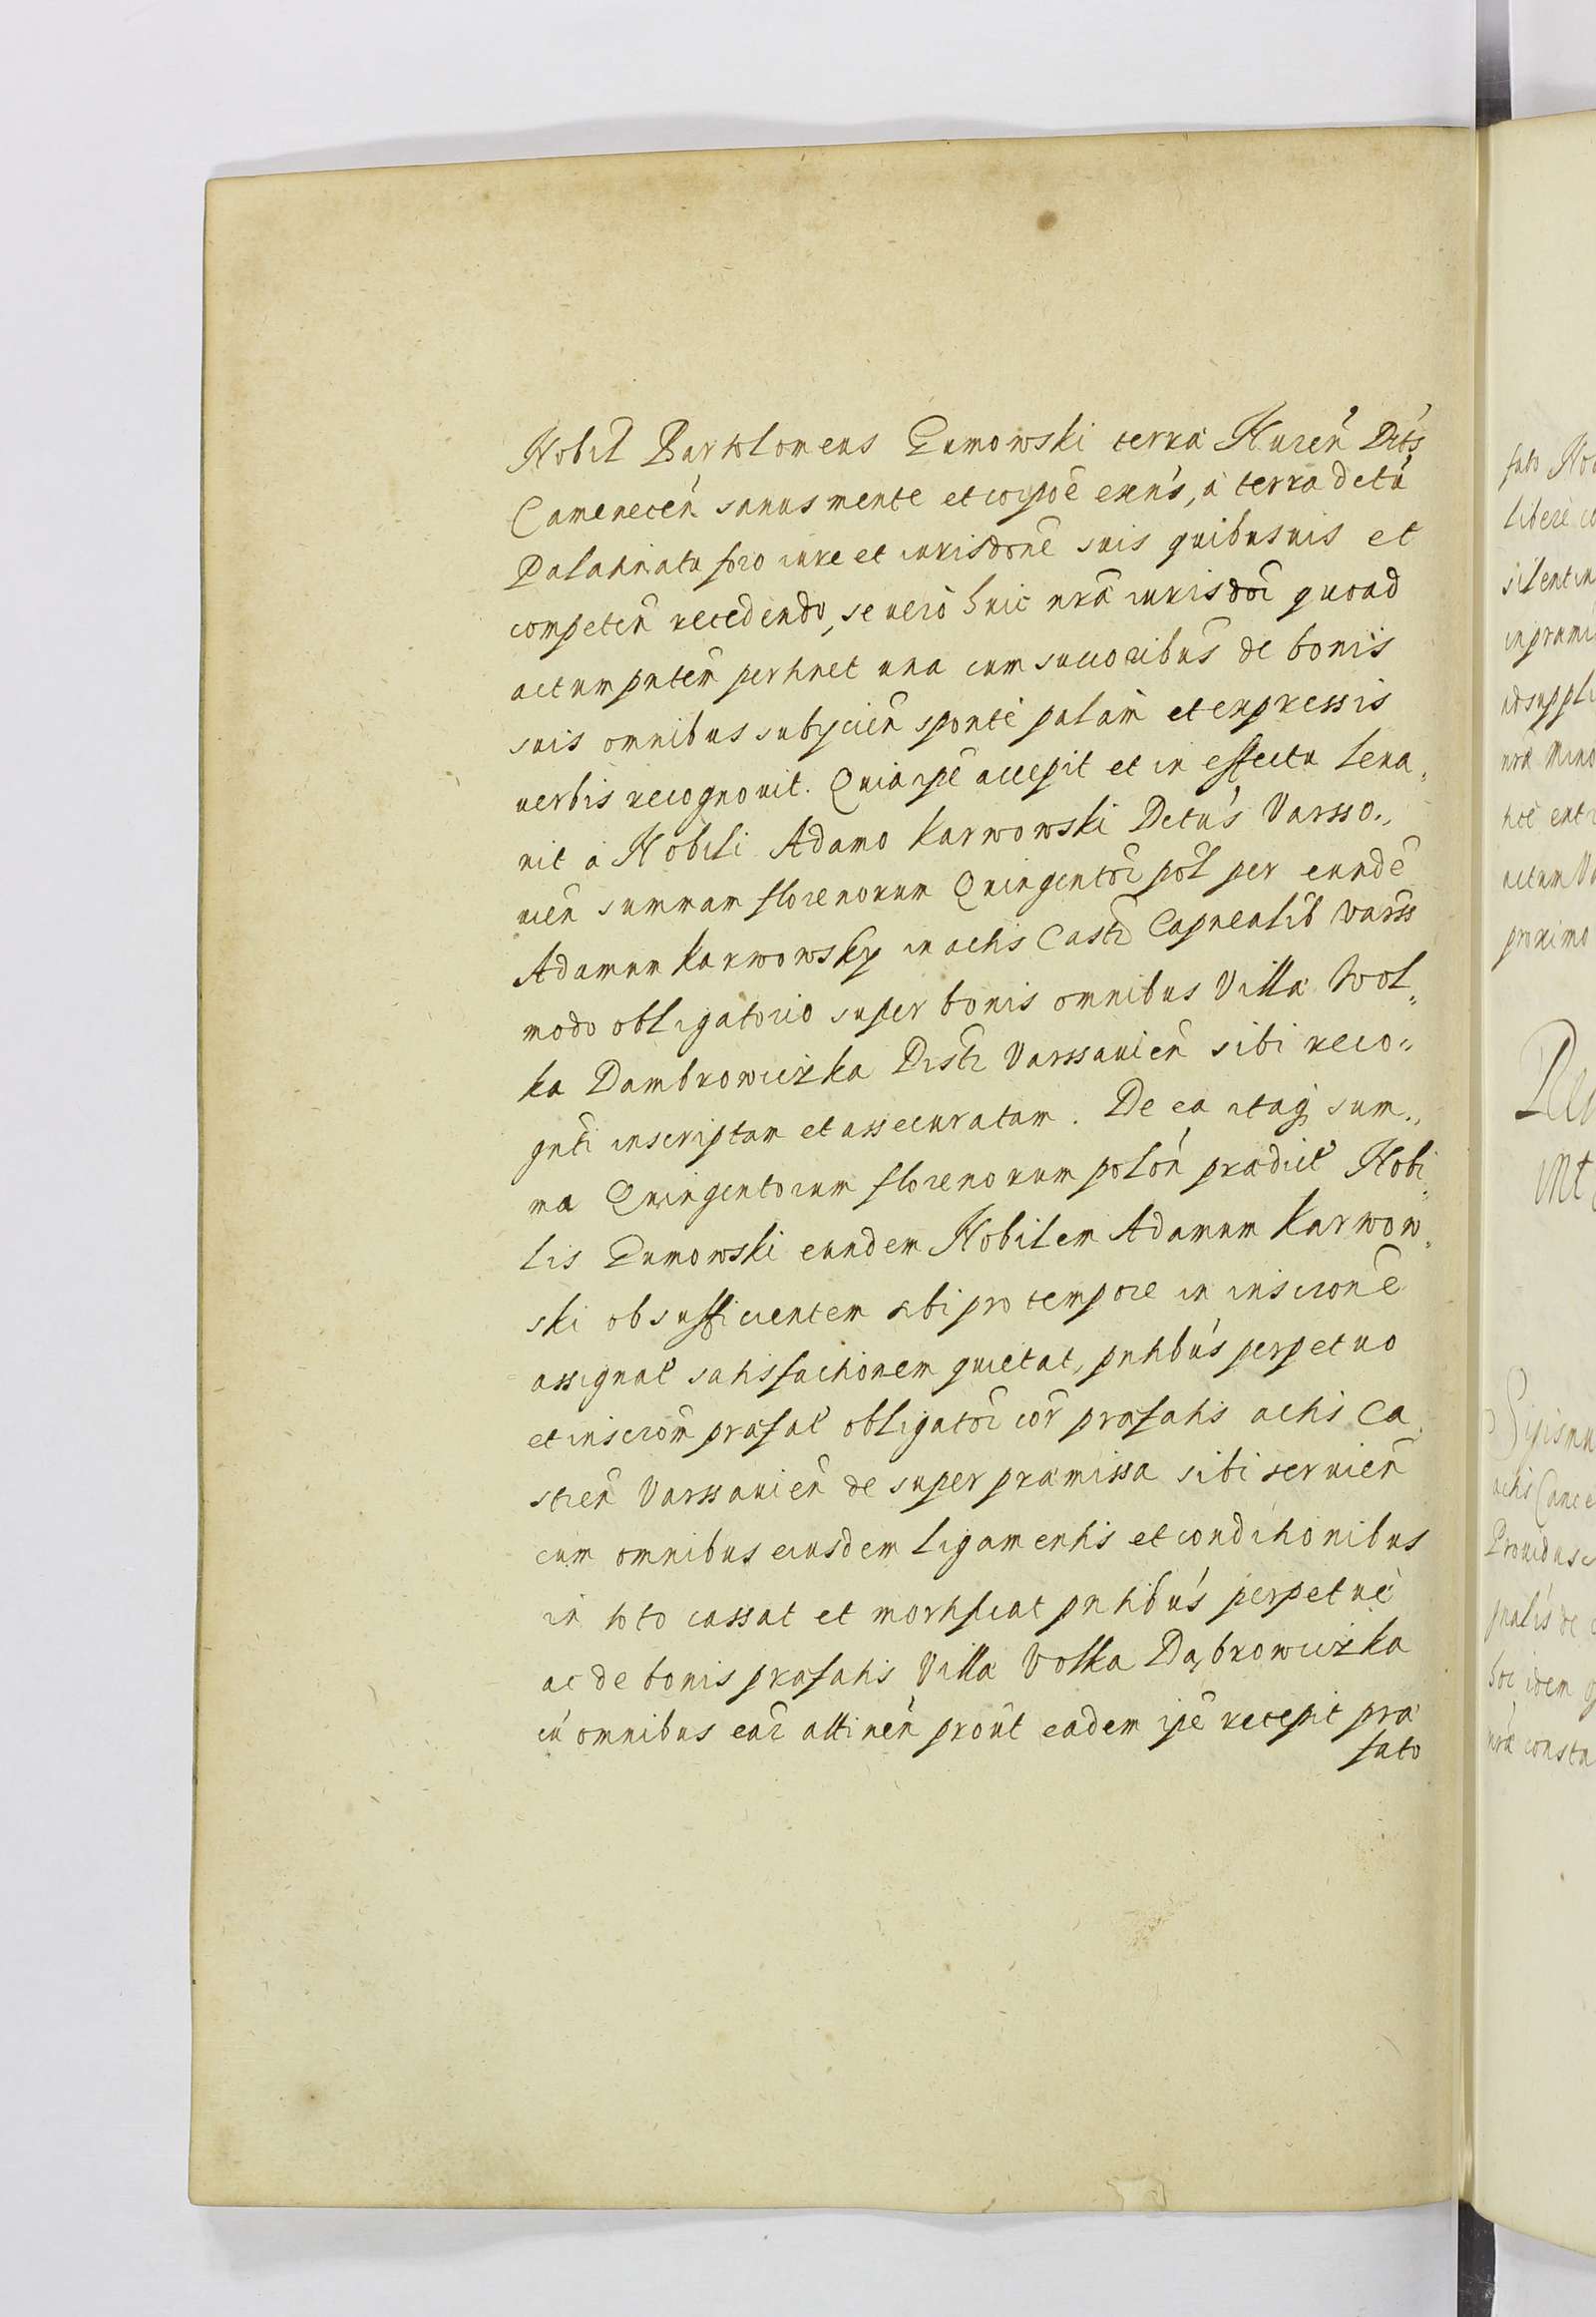 Nobil Bartolomeus Gumowski terrae Nuren Dits
Camenecen sanus mente et corpoē exens, à terra dctu
Palatinatu foro iure et iurisdonē suis quibusuis et
competen recedendo, se uerò huic nrae iurisdoi quoad
actum pntem pertinet una cum succoribus de bonis
suis omnibus subycien sponte palam et expressis
uerbis recognouit. Quia ipē accepit et in effectu leua„
uit à Nobili Adamo Karwowski Dctus Varsso„
uien summam florenorum Quingentor pol per eundē
Adamum Karwowsky in actis Castr Capnealib Warss
modo obligatorio super bonis omnibus Villae Wol„
ka Dambrowiczka Distr Varssauien sibi reco„
gnti inscriptam et assecuratam. De ea itaq sum„
ma Quingentorum florenorum polon praedict Nobi„
lis Gumowski eundem Nobilem Adamum Karwow„
ski ob sufficientem sibi pro tempore in inscronē
assignat satisfactionem quietat, pntibus perpetuo
et inscrom praefat obligator cor praefatis actis Ca
stren Varssauien de super praemissa sibi seruien
cum omnibus eiusdem ligamentis et conditionibus
in toto cassat et mortificat pntibus perpetuè
ac de bonis praefatis Villae Volka Dąbrowiczka
cū omnibus ear attinen prout eadem ipē recepit prae
fato
fato
libere
silentiu
in praemi
ad suppl
nrae
actum
proximo
Sigismu
actis Cance
Prouidus
hoc idem
nrae consta